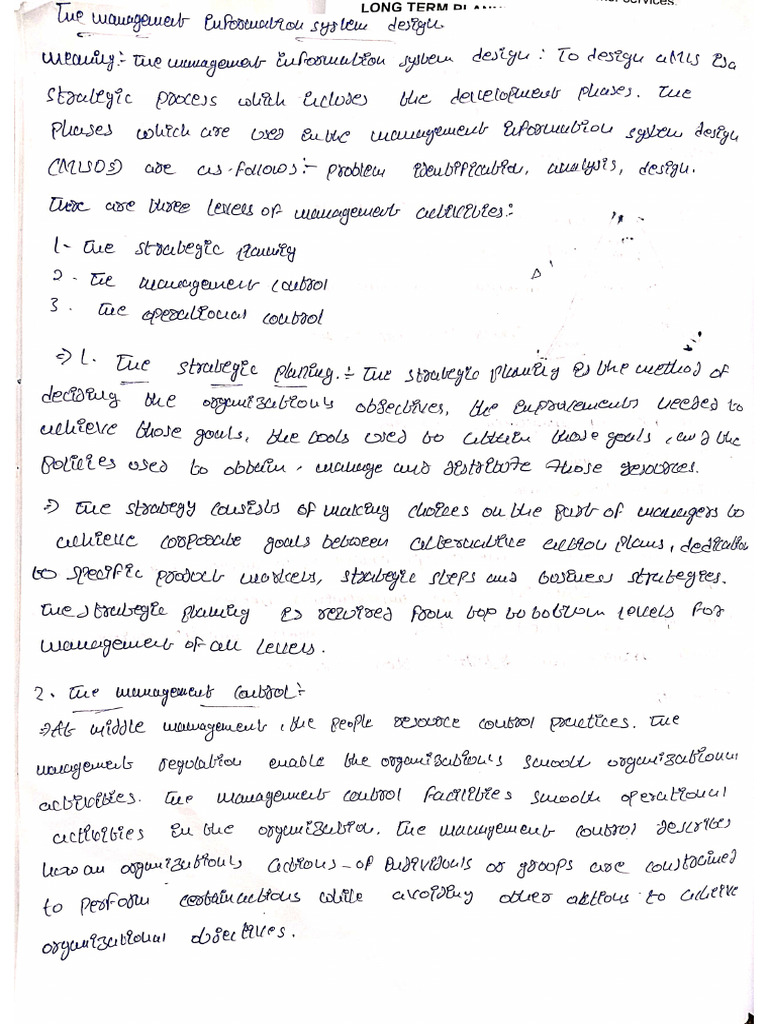 LONG TERM PLAN
services.
The management Information system design
Meaning:- The management Information system design : To design a MIS is a
strategic process which includes the development phases. The
phases which are used in the management Information system design
(MISDS) are as-follows:- problem identification, analysis, design.
There are three levels of management activities:-
1- The strategic planning
2. The management control
3. The operational control
=> 1. The strategic planing.:- The strategic planning is the method of
deciding the organization's objectives, the improvements needed to
achieve those goals, the tools used to attain those goals, and the
policies used to obtain, manage and distribute those resources.
=> The strategy consists of making choices on the part of managers to
achieve corporate goals between alternative action plans, dedication
to specific product markets, strategic steps and business strategies.
The strategic planning is required from top to bottom levels for
management of all levels.
2. The management control:-
=> At middle management, the people resource control practices. The
management regulation enable the organization's smooth organizational
activities. The management control facilities smooth operational
activities in the organization. The management control describes
how an organization's actions - of individuals or groups are constrained
to perform certain actions while avoiding other aktions to achieve
organizational objectives.